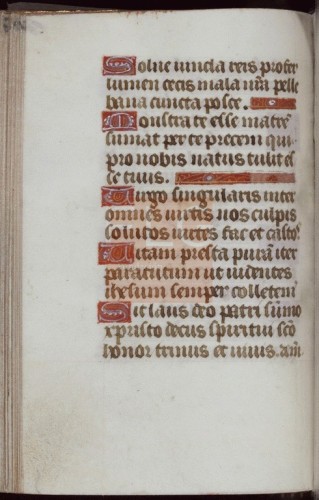 Solue uincla reis profer
lumen cecis mala nr̄a pelle
bona cuncta posce.
Monstra te esse matrē
sumat per te precem qui
pro nobis natus tulit es
se tuus.
Uirgo singularis inter
omnes mitis nos culpis
solutos mites fac et castos
Uitam presta purā iter
para tutum ut uidentes
ihesum semper colletem̄
Sit laus deo patri sūmo
xpristo decus spiritui scō
honor trinus et unus. am̄